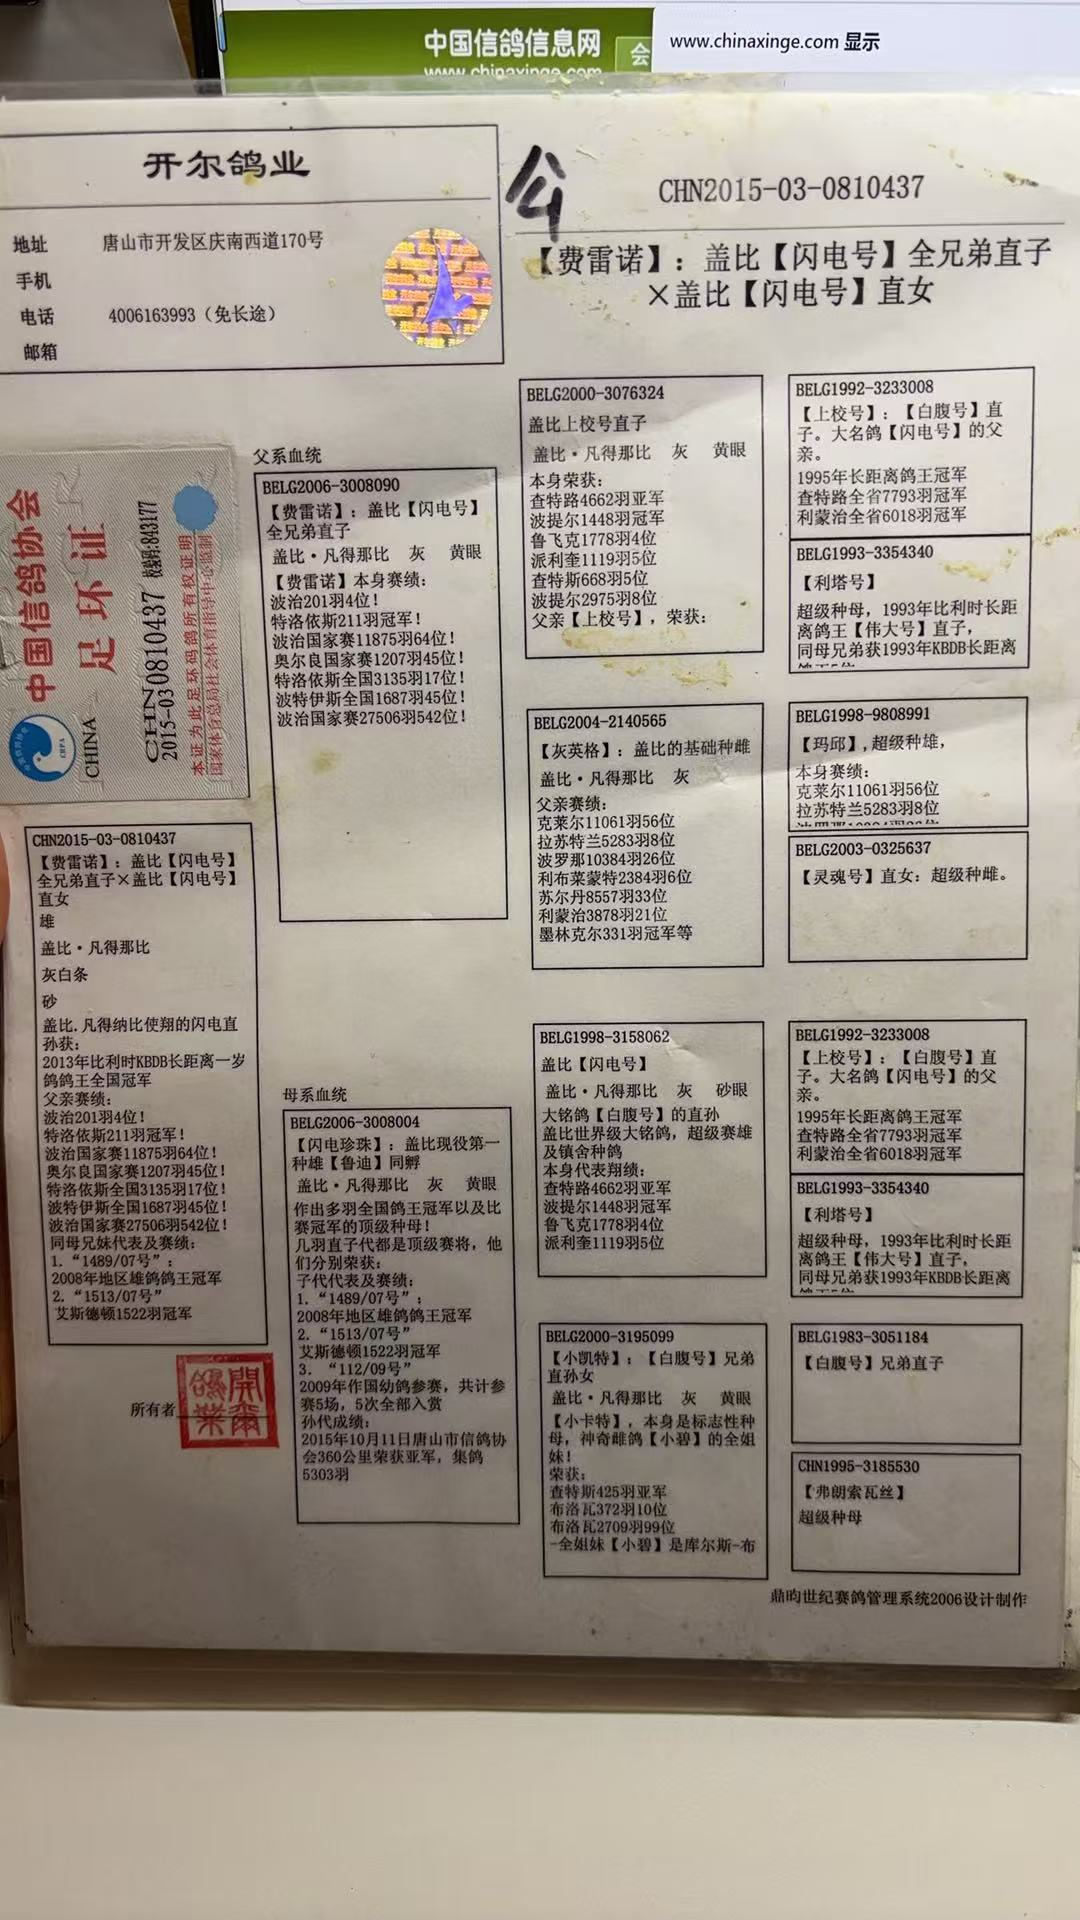 中国信鸽信息网
www.chinaxinge.com
会
www.chinaxinge.com 显示
开尔鸽业
地址 唐山市开发区庆南西道170号
手机
电话 4006163993（免长途）
邮箱
公
CHN2015-03-0810437
【费雷诺】：盖比【闪电号】全兄弟直子
×盖比【闪电号】直女
中国信鸽协会
足环证
CHRPA
CHINA
CHN
2015-03 0810437 校验码:843177
本证为此足环码鸽所有权证明
国家体育总局社会体育指导中心监制
CHN2015-03-0810437
【费雷诺】：盖比【闪电号】
全兄弟直子×盖比【闪电号】
直女
雄
盖比·凡得那比
灰白条
砂
盖比.凡得纳比使翔的闪电直
孙获：
2013年比利时KBDB长距离一岁
鸽鸽王全国冠军
父亲赛绩：
波治201羽4位！
特洛依斯211羽冠军！
波治国家赛11875羽64位！
奥尔良国家赛1207羽45位！
特洛依斯全国3135羽17位！
波特伊斯全国1687羽45位！
波治国家赛27506羽542位！
同母兄妹代表及赛绩：
1. “1489/07号”：
2008年地区雄鸽鸽王冠军
2. “1513/07号”
艾斯德顿1522羽冠军
所有者
開爾鴿業
父系血统
BELG2006-3008090
【费雷诺】：盖比【闪电号】
全兄弟直子
盖比·凡得那比 灰 黄眼
【费雷诺】本身赛绩：
波治201羽4位！
特洛依斯211羽冠军！
波治国家赛11875羽64位！
奥尔良国家赛1207羽45位！
特洛依斯全国3135羽17位！
波特伊斯全国1687羽45位！
波治国家赛27506羽542位！
母系血统
BELG2006-3008004
【闪电珍珠】：盖比现役第一
种雄【鲁迪】同孵
盖比·凡得那比 灰 黄眼
作出多羽全国鸽王冠军以及比
赛冠军的顶级种母！
几羽直子代都是顶级赛将，他
们分别荣获：
子代代表及赛绩：
1. “1489/07号”：
2008年地区雄鸽鸽王冠军
2. “1513/07号”
艾斯德顿1522羽冠军
3. “112/09号”
2009年作国幼鸽参赛，共计参
赛5场，5次全部入赏
孙代成绩：
2015年10月11日唐山市信鸽协
会360公里荣获亚军，集鸽
5303羽
BELG2000-3076324
盖比上校号直子
盖比·凡得那比 灰 黄眼
本身荣获：
查特路4662羽亚军
波提尔1448羽冠军
鲁飞克1778羽4位
派利奎1119羽5位
查特斯668羽5位
波提尔2975羽8位
父亲【上校号】，荣获：
BELG2004-2140565
【灰英格】：盖比的基础种雌
盖比·凡得那比 灰
父亲赛绩：
克莱尔11061羽56位
拉苏特兰5283羽8位
波罗那10384羽26位
利布莱蒙特2384羽6位
苏尔丹8557羽33位
利蒙治3878羽21位
墨林克尔331羽冠军等
BELG1998-3158062
盖比【闪电号】
盖比·凡得那比 灰 砂眼
大铭鸽【白腹号】的直孙
盖比世界级大铭鸽，超级赛雄
及镇舍种鸽
本身代表翔绩：
查特路4662羽亚军
波提尔1448羽冠军
鲁飞克1778羽4位
派利奎1119羽5位
BELG2000-3195099
【小凯特】：【白腹号】兄弟
直孙女
盖比·凡得那比 灰 黄眼
【小卡特】，本身是标志性种
母，神奇雌鸽【小碧】的全姐
妹！
荣获：
查特斯425羽亚军
布洛瓦372羽10位
布洛瓦2709羽99位
-全姐妹【小碧】是库尔斯-布
BELG1992-3233008
【上校号】：【白腹号】直
子。大名鸽【闪电号】的父
亲。
1995年长距离鸽王冠军
查特路全省7793羽冠军
利蒙治全省6018羽冠军
BELG1993-3354340
【利塔号】
超级种母，1993年比利时长距
离鸽王【伟大号】直子，
同母兄弟获1993年KBDB长距离
鸽王5位
BELG1998-9808991
【玛邱】,超级种雄，
本身赛绩：
克莱尔11061羽56位
拉苏特兰5283羽8位
波罗那10384羽26位
BELG2003-0325637
【灵魂号】直女：超级种雌。
BELG1992-3233008
【上校号】：【白腹号】直
子。大名鸽【闪电号】的父
亲。
1995年长距离鸽王冠军
查特路全省7793羽冠军
利蒙治全省6018羽冠军
BELG1993-3354340
【利塔号】
超级种母，1993年比利时长距
离鸽王【伟大号】直子，
同母兄弟获1993年KBDB长距离
鸽王5位
BELG1983-3051184
【白腹号】兄弟直子
CHN1995-3185530
【弗朗索瓦丝】
超级种母
鼎昀世纪赛鸽管理系统2006设计制作